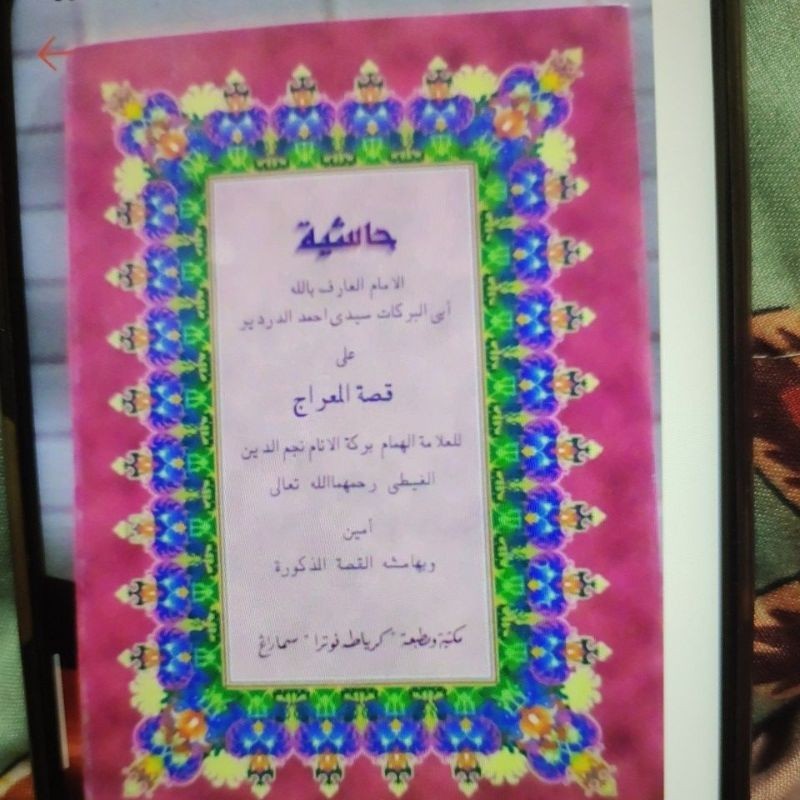 حاشية
الامام العارف بالله
أبى البركات سيدى احمد الدردير
على
قصة المعراج
للعلامة الهمام بركة الانام نجم الدين
الغيطى رحمهماالله تعالى
أمين
وبهامشه القصة المذكورة
مكتبة ومطبعة "كرياطه فوترا" سماراغ